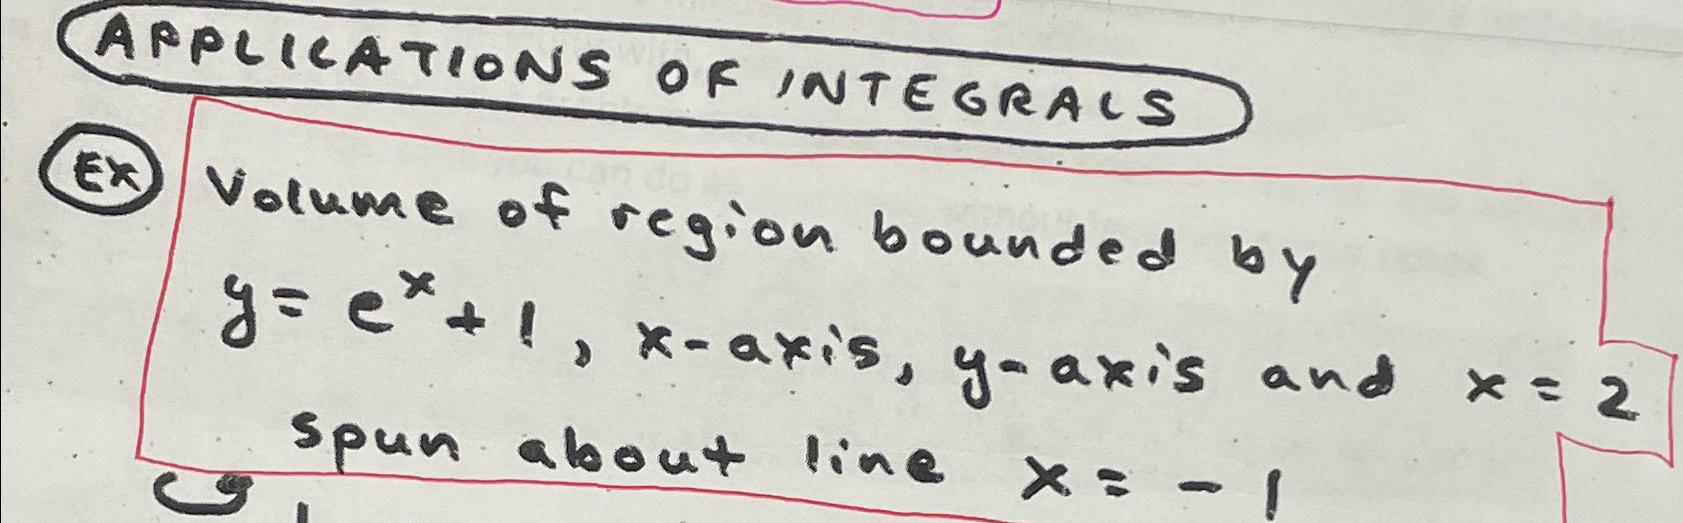 APPLICATIONS OF INTEGRALS
EX Volume of region bounded by
y = e^x + 1, x-axis, y-axis and x = 2
spun about line x = -1